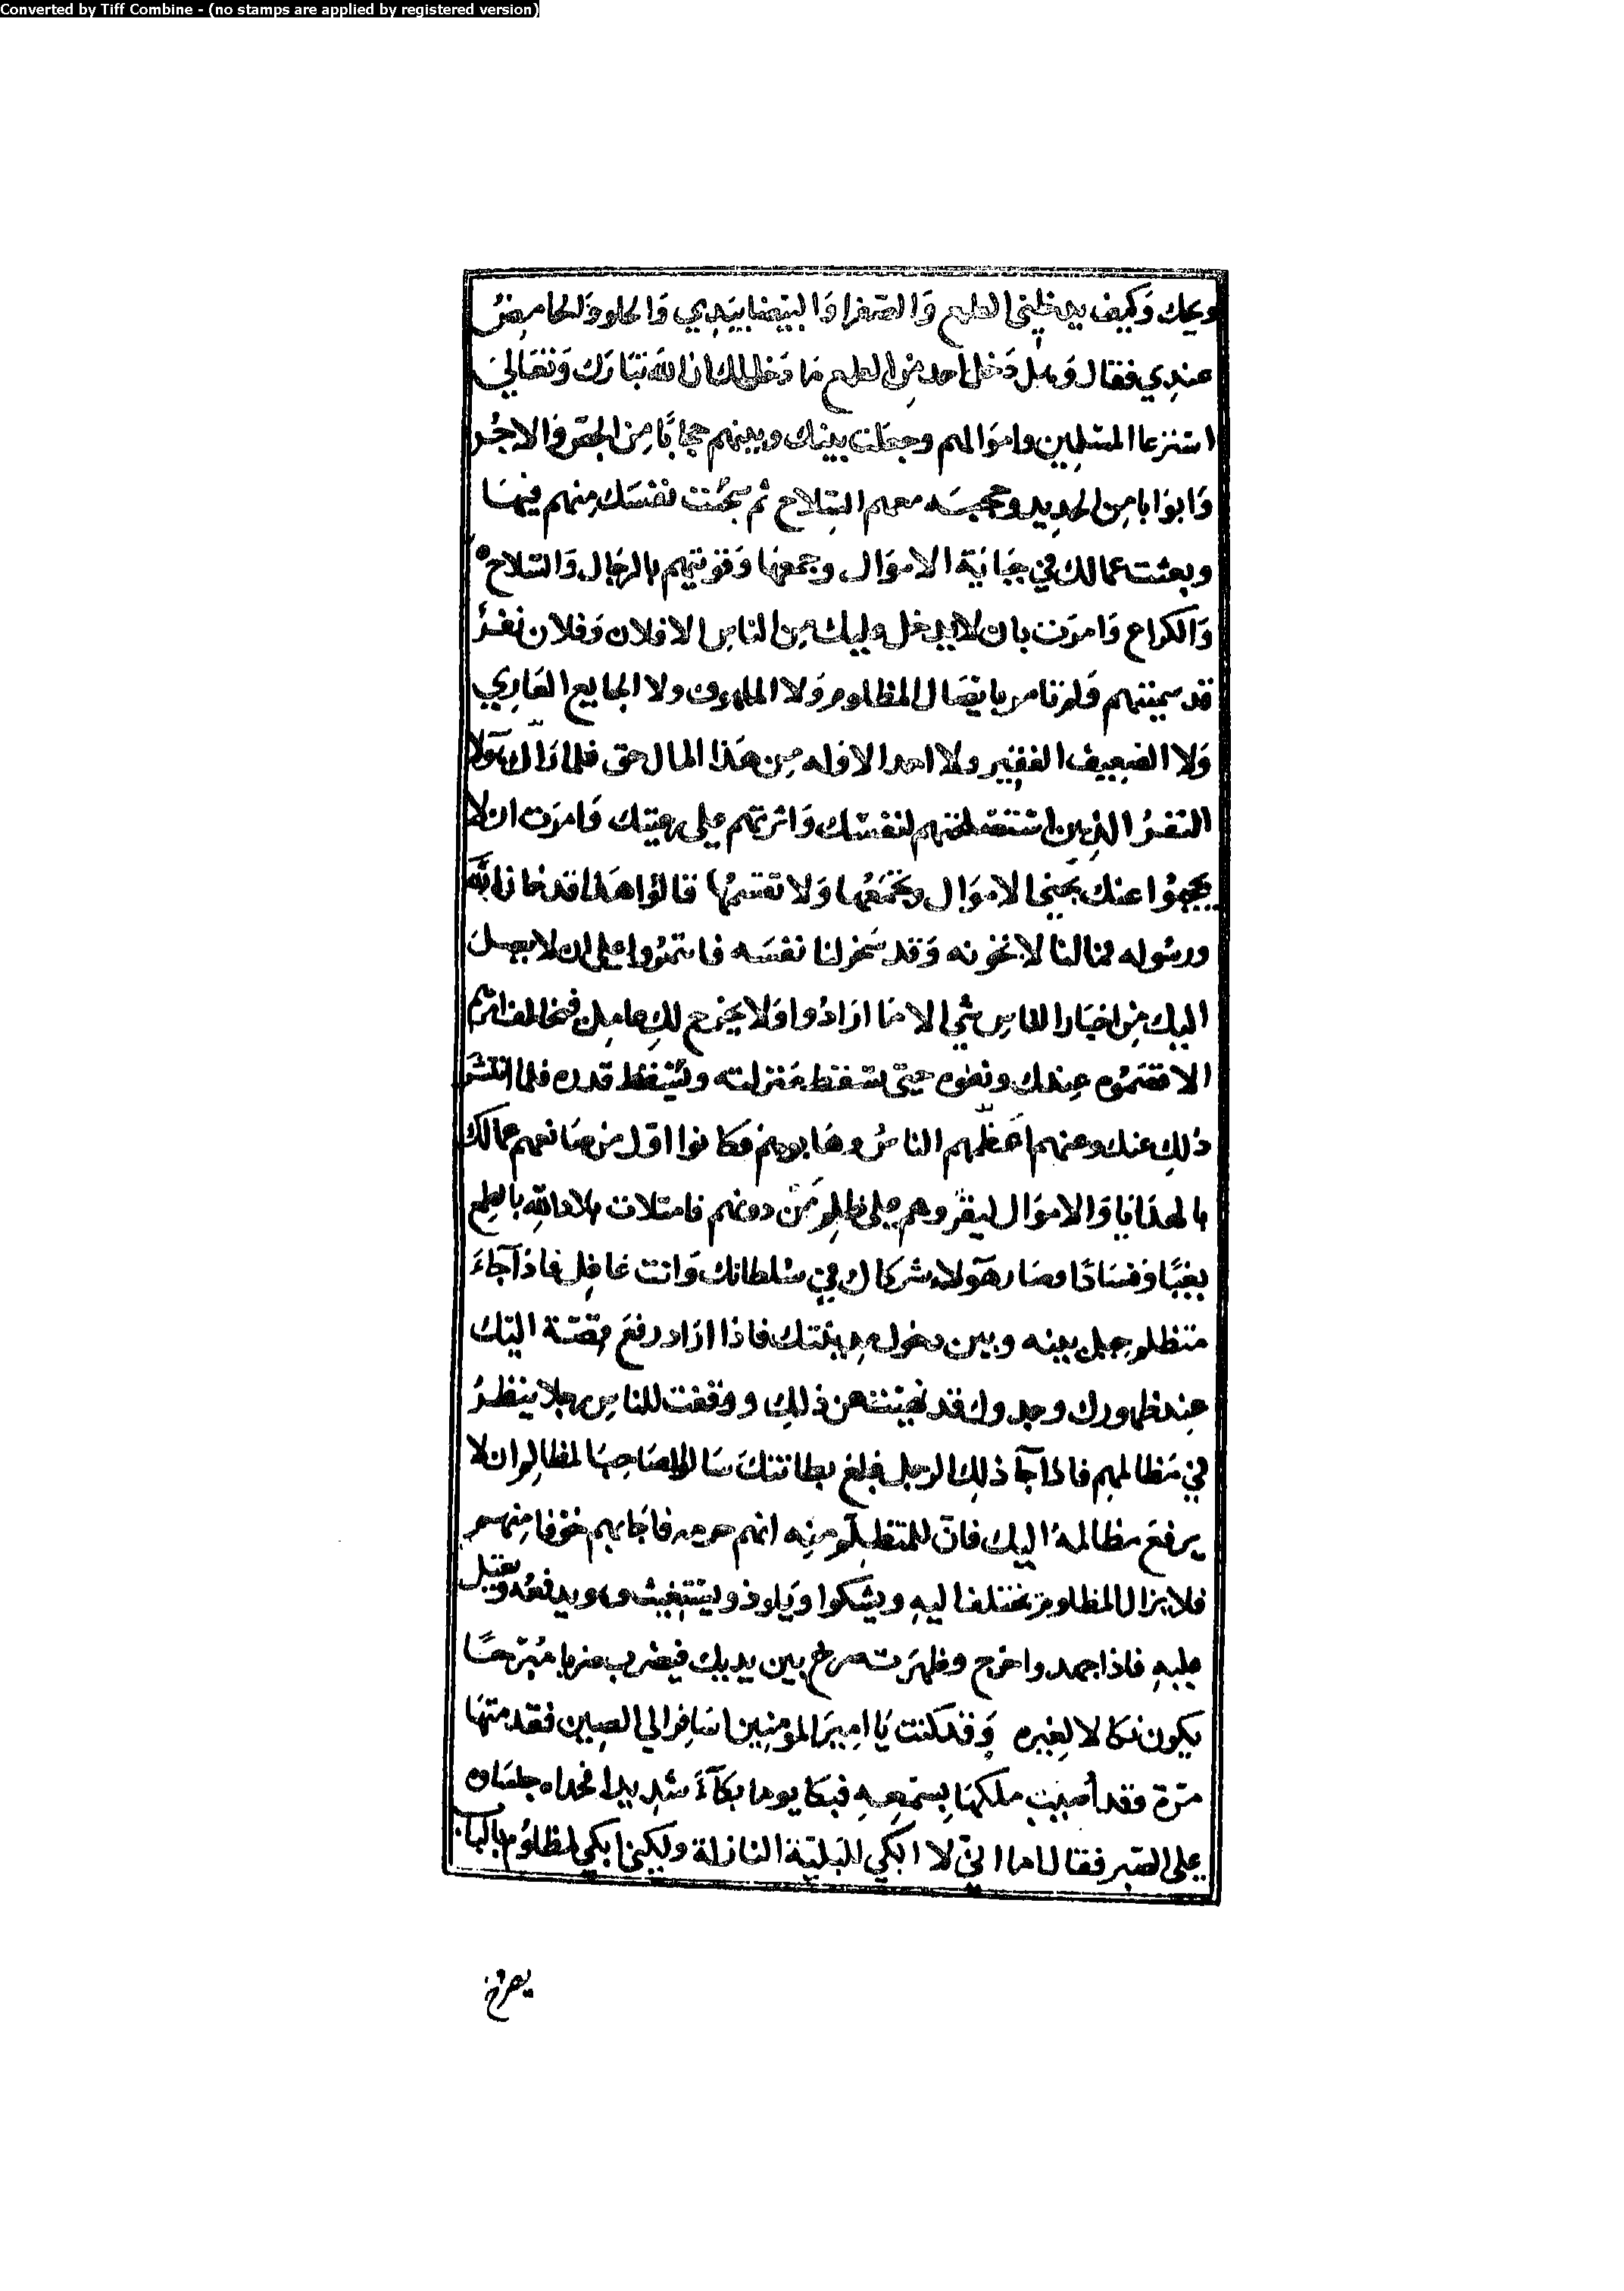 Converted by Tiff Combine - (no stamps are applied by registered version)
ويحك وَكيف يدخلني الطمع وَالصّفرا وَالبيضا بيَدِي وَالحلو وَالحامِضُ
عندِي فقال وَهل دَخل احد مِن الطمع مَا دَخلك ان الله تبَارَك وَتعَالىَ
استرعاك المسلِمين واموَالهم وجعَلت بينك وبينهم حجابًا مِن الجصّ وَالاجُر
وَابوَابا مِن الحدِيد وحجبَه معهم السّلاح ثم سجنت نفسَك مِنهم فيهَا
وبعثت عمالك في جبَايَة الاموَال وجمعهَا وَقوّيتهم بالرجَال وَالسّلاح
وَالكراع وَامرَت بان لا يدخل عليك مِن الناس الا فلان وَفلان نفرُ
قد سميتهم وَلم تامر بايصَال المظلوم وَلا الملهوف ولا الجايع العَارِي
وَلا الضعِيف الفقير ولا احد الا وَله مِن هَذا المال حق فلما رَاك هَولا
النفرُ الذِين استخلصتهم لنفسَك وَاثرتهم على رعيتك وَامرَت ان لا
يحجبُوا عنك تجبي الاموَال وتجمَعُها وَلا تقسمُها قالوُا هَذا قد خان الله
ورسُوله فما لنا لا نخونه وَقد سَخر لنا نفسَه فاتمرُوا على ان لا يصل
اليك مِن اخبَار الناس شي الا مَا ارَادُوا وَلا يخرج لك عامِل فيخالف امرهم
الا قصَموُه عِندك ونفوه حتى تسقط مَنزلته ويَسقط قدره فلما انتشَر
ذلِك عنك وعنهم اعَظمهم الناسُ وهَابوهم فكانوا اوّل من صَانعهم عمالك
بالهدَايَا وَالاموَال ليقوُوا هم على ظلم مَن دونهم فامتلات بلاد الله بالطمع
بغيًا وَفسَادًا وصَار هَولاء شركاك في سُلطانك وَانت غافِل فاذا جَاءَ
متظلم حِيل بينه وبين دخول مدِينتك فاذا ارَاد رفع قصّة اليَك
عِند ظهورك وجدوك قد نهَيت عن ذلِك ووقفت للناس رجلا ينظرُ
في مَظالمهم فاذا جَا ذلِك الرجل فبلغ بطانتك سَالوا صَاحِب المظالِم ان لا
يرفعَ مظالمهُ اليك فان للمتظلَّم مِنه انهم حرمه فاجَابهم خوفا مِنهم
فلا يزال المظلوم يختلف اليهِ ويشكوا وَيلوذ ويستغِيث وهو يدفعُه ويعتل
عليهِ فاذا جهد واخرج وظهرَت صرخ بين يديك فيضرب ضربا مُبرّحًا
يكون نكالا لِغيره وَقد كنت يَا امِير المومِنين اسَافر الى الصِين فقدمتهَا
مرّة وقد اُصِيبَ ملكهَا بسَمعِهِ فبكا يوما بكآءً شدِيدا فحداه جلسَاوه
على الصّبر فقال اما اني لا ابكي للبَليّة النازلة ولكِني ابكي لمظلوُم بالباب
يصرخ